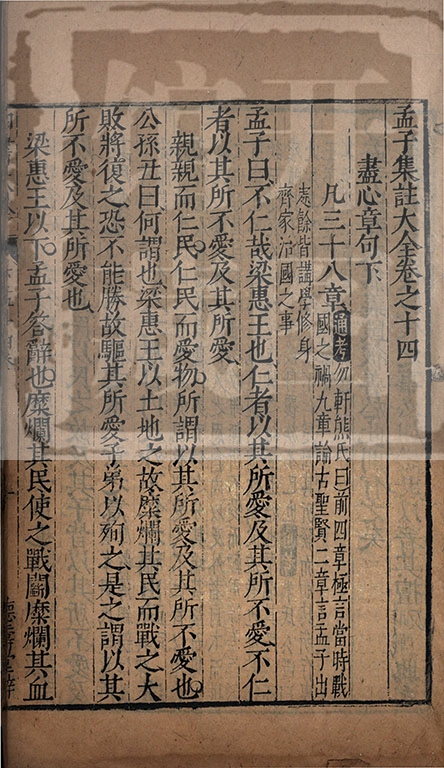 孟子集註大全卷之十四
盡心章句下
凡三十八章
通考勿軒熊氏曰前四章極言當時戰
國之禍九章論古聖賢二章言孟子出
志餘皆講學修身
齊家治國之事
孟子曰不仁哉梁惠王也仁者以其所愛及其所不愛不仁
者以其所不愛及其所愛
親親而仁民仁民而愛物所謂以其所愛及其所不愛也
公孫丑曰何謂也梁惠王以土地之故糜爛其民而戰之大
敗將復之恐不能勝故驅其所愛子弟以殉之是之謂以其
所不愛及其所愛也
梁惠王以下孟子答辭也糜爛其民使之戰鬬糜爛其血